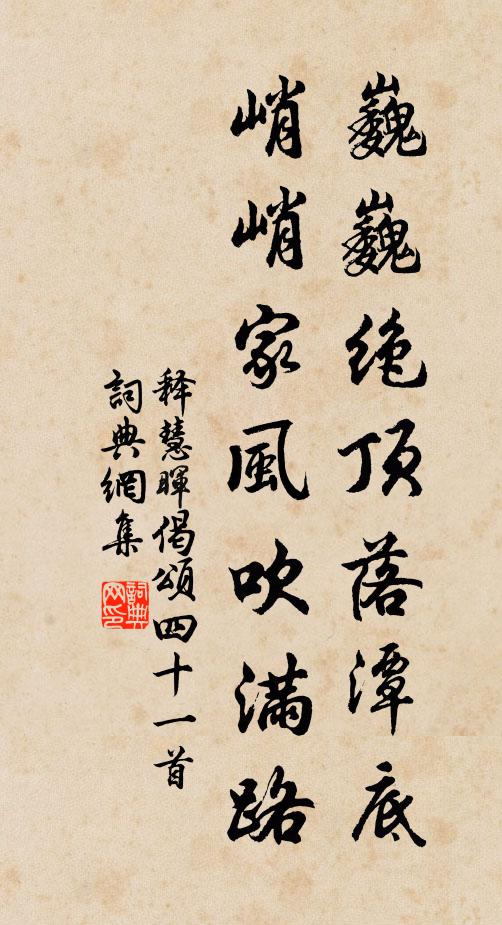 巍巍絶頂落潭底
峭峭家風吹滿路
释慧暉偈頌四十一首
詞典網集
詞典
网印